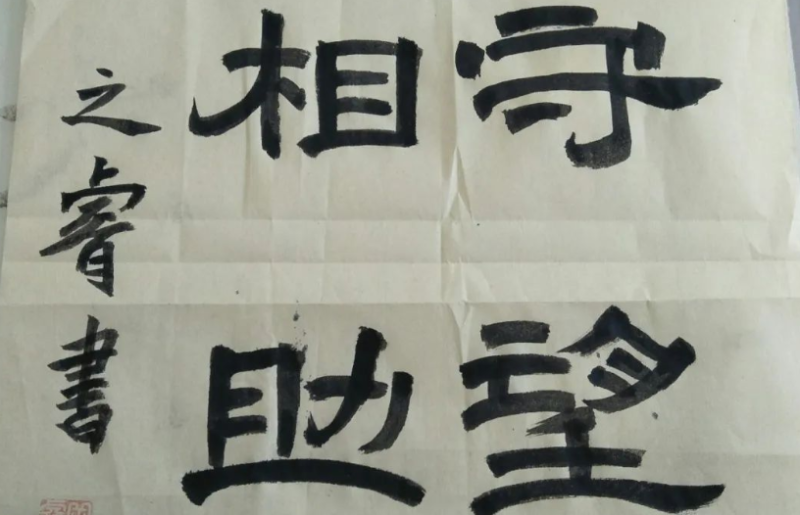 守望
相助
之睿書